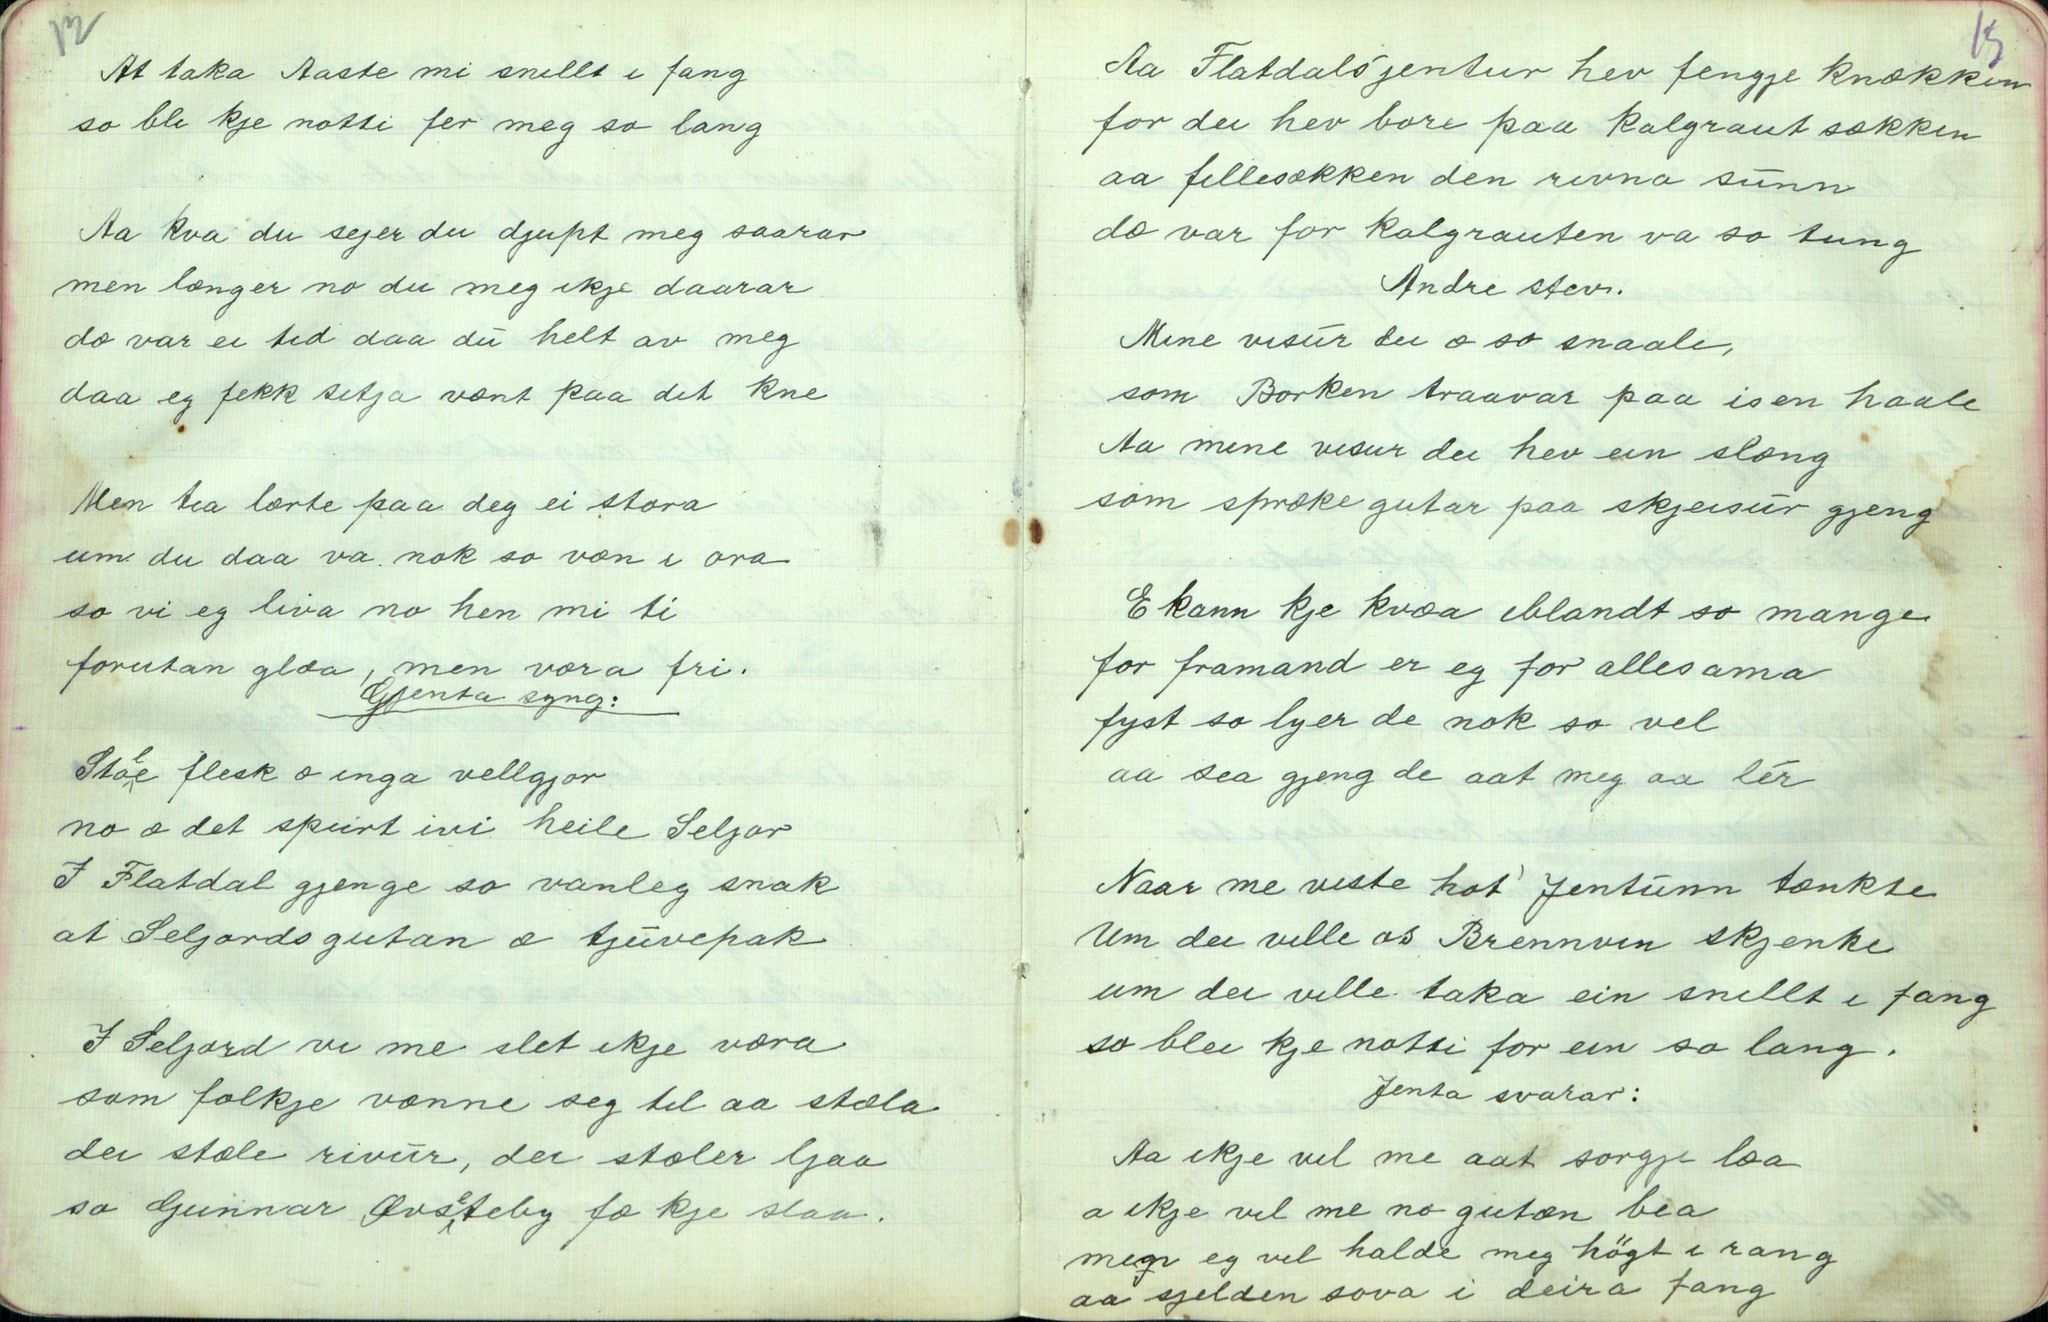 12
At taka Aaste mi snillt i fang
so bli kje notti fer meg so lang
Aa kva du sejer du djupt meg saarar
men længer no du meg ikje daarar
dæ var ei tid daa dū helt av meg
daa eg fekk sitja vænt paa dit kne
Men tia lærte paa deg ei stora
um du daa va nok so væn i ora
so vi eg liva no hen mi ti
forutan glæa, men væra fri.
Gjenta syng:
Stæle flesk æ inga vellgjor
no æ det spurt ivi heile Seljor
I Flatdal gjenge so vanleg snak
at Seljordsgutan æ tjūvepak
I Seljord vi me slet ikje væra
som folkje vænne seg til aa stæla
dei stæle rivūr, dei stæler ljaa
so Gunnar Øvsteby fæ kje slaa.
13
Aa Flatdalsjentur hev fengje knækken
for dei hev bore paa kalgraut sækken
aa fillesækken den rivna sūnn
dæ var for kalgrauten va so tung
Andre stev.
Mine visūr dei æ so snaale,
som Borken traavar paa isen haale
Aa mine visur dei hev ein slæng
som spræke gutar paa skjeisūr gjeng
E kann kje kvæa iblandt so mange
for framand er eg for allesama
fyst so lyer de nok so vel
aa sea gjeng de aat meg aa lér
Naar me viste hot Jentūnn tænkte
Um dei ville os Brennvin skjenke
um dei ville taka ein snillt i fang
so blei kje notti for ein so lang.
Jenta svarar:
Aa ikje vil me aat sorgje læa
a ikje vil me no gutæn bea
men eg vil halde meg högt i rang
aa sjelden sova i deira fang